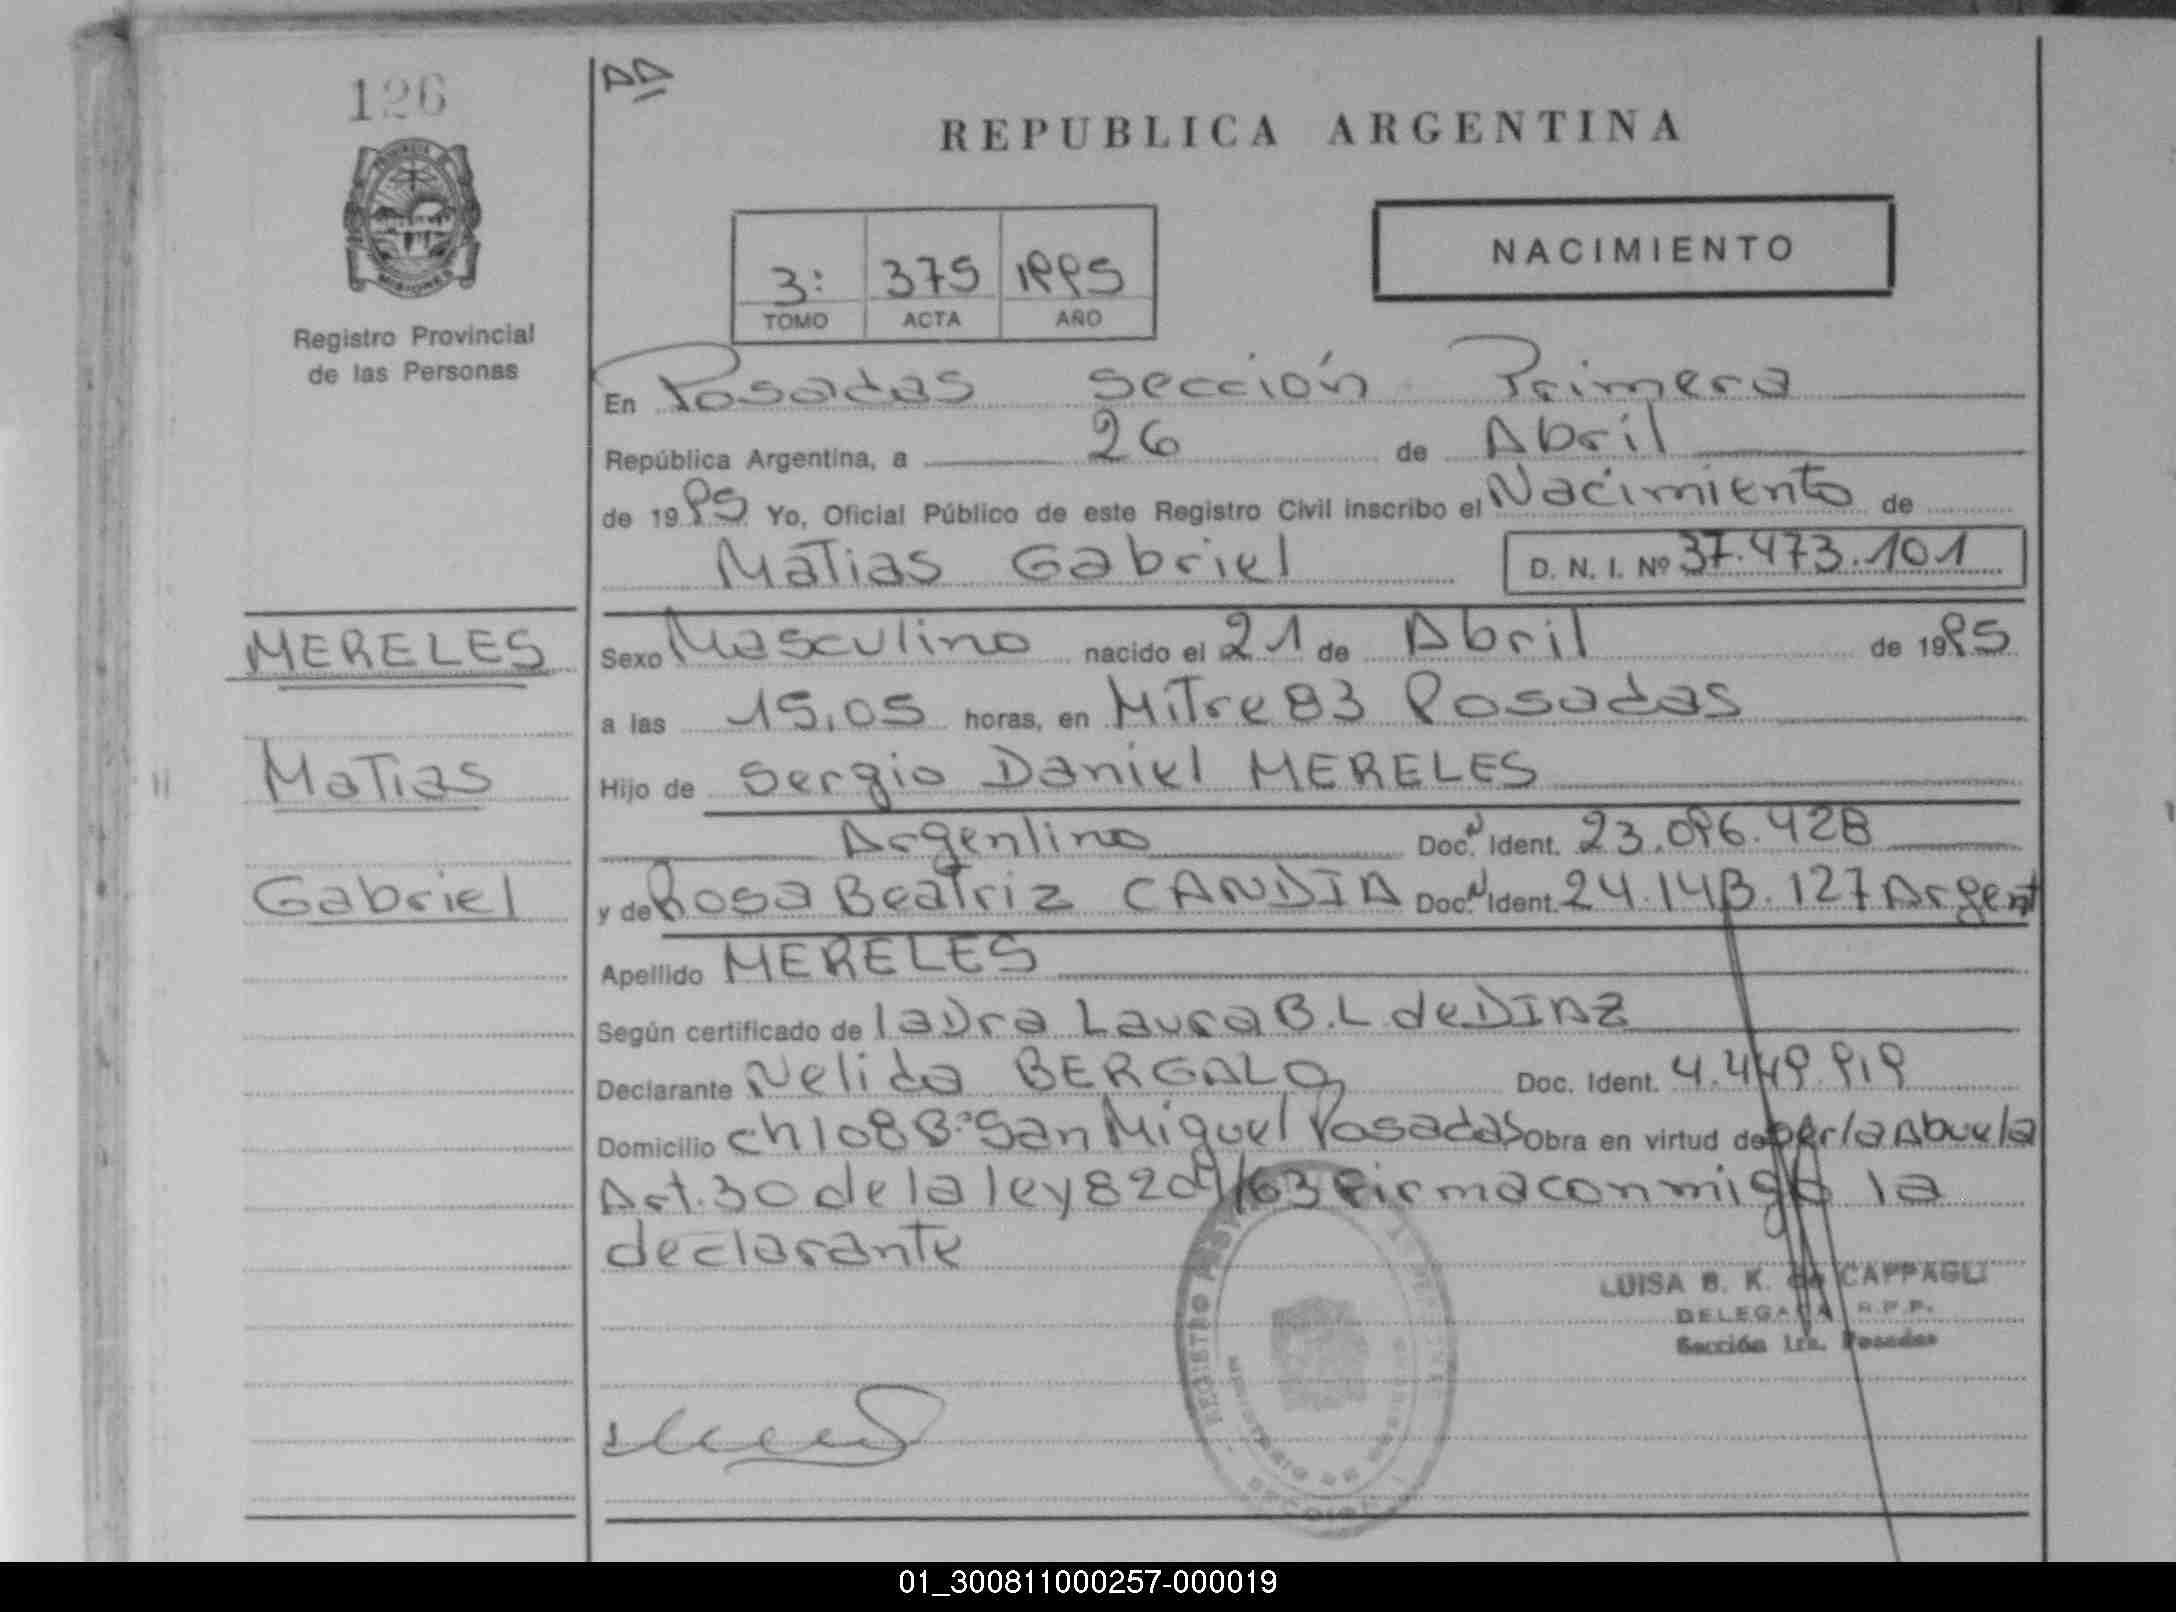 126
AA
REPUBLICA ARGENTINA
Registro Provincial
de las Personas
3: 375 1995
TOMO ACTA AÑO
NACIMIENTO
En Posadas sección Primera
República Argentina, a 26 de Abril
de 1995 Yo, Oficial Público de este Registro Civil inscribo el Nacimiento de
Matias Gabriel D. N. I. Nº 37.473.101
MERELES
Matias
Gabriel
Sexo Masculino nacido el 21 de Abril de 1995
a las 15,05 horas, en Mitre 83 Posadas
Hijo de Sergio Daniel MERELES
Argentino Doc. N Ident. 23.096.428
y de Rosa Beatriz CANDIA Doc. N Ident. 24.143.127 Argent
Apellido MERELES
Según certificado de la Dra Laura B. L. de DIAZ
Declarante Nelida BERGALO Doc. Ident. 4.449.919
Domicilio ch 108 Bº San Miguel Posadas Obra en virtud de ser la Abuela
Art. 30 de la ley 8209/63 Firma conmigo la
declarante
LUISA B. K. de CAPPAGLI
DELEGADA R.P.P.
Sección 1ra. Posadas
01_300811000257-000019